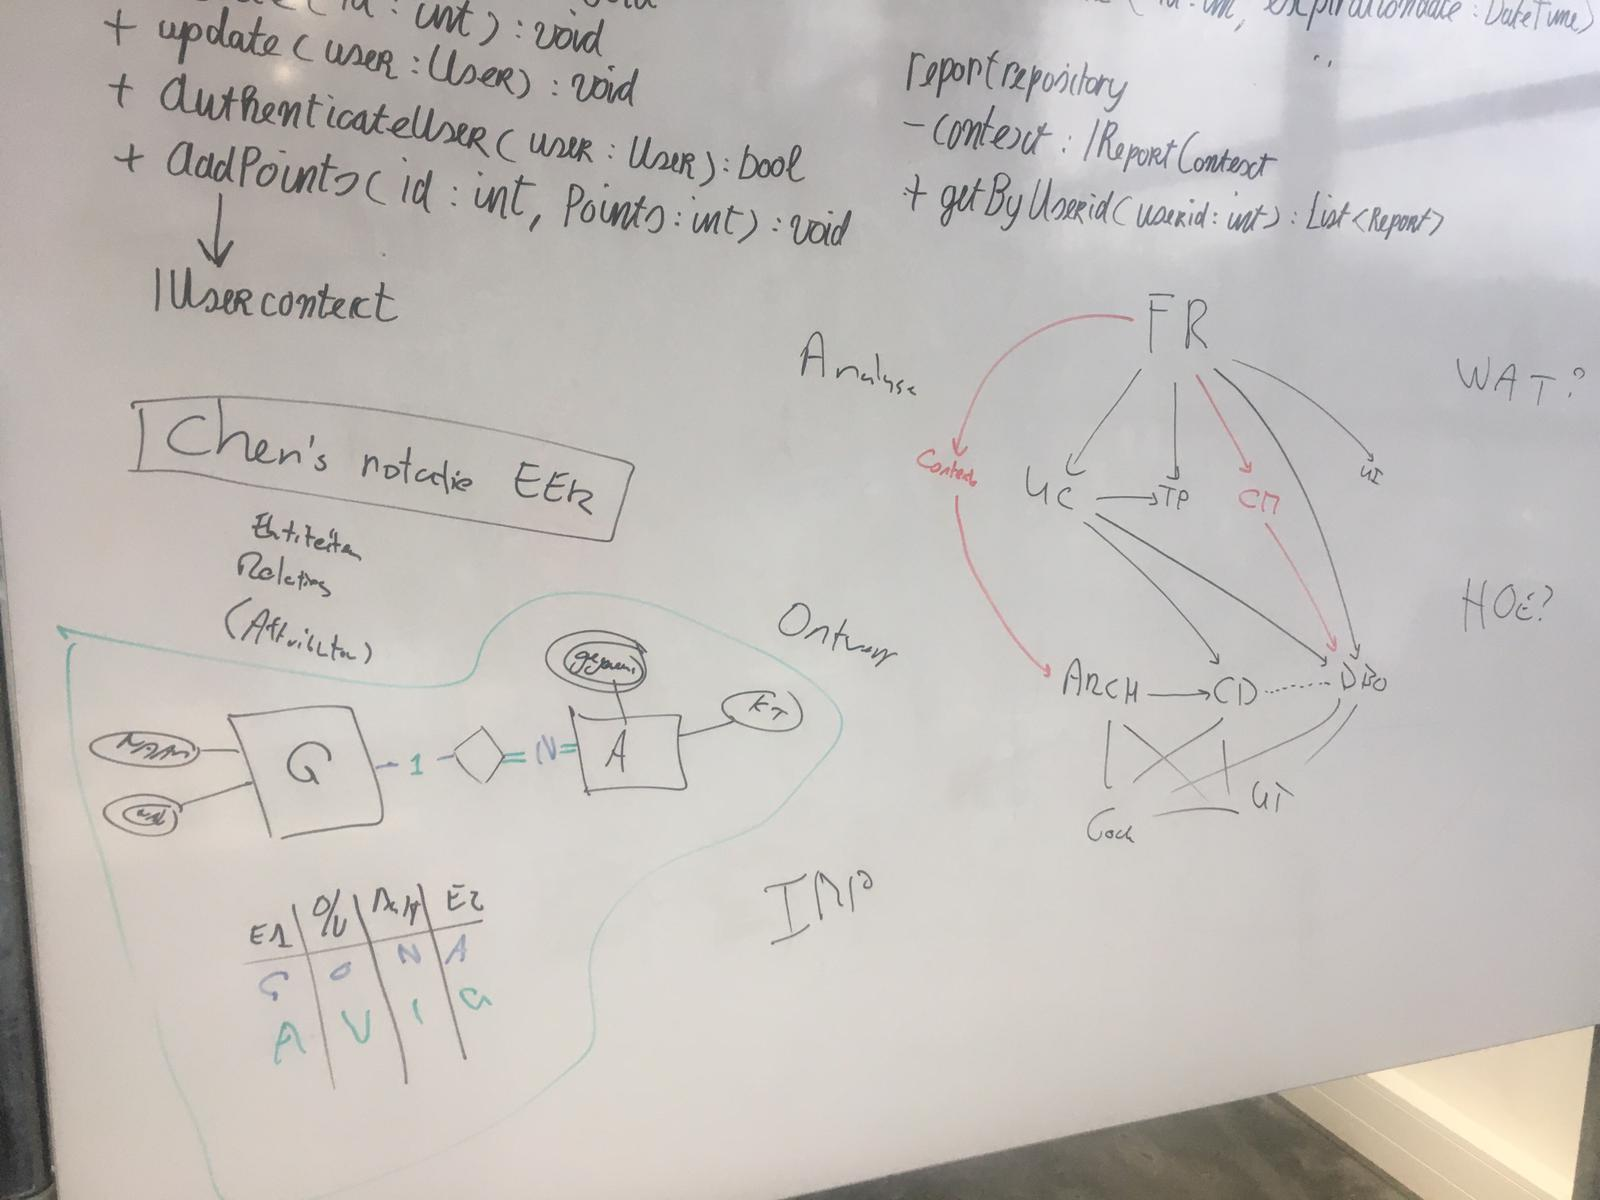 (id : int) : void
+ update (user : User) : void
+ AuthenticateUser (user : User) : bool
+ addPoints (id : int, Points : int) : void
IUsercontext
expirationdate : DateTime)
reportrepository
- context : IReportContext
+ getByUserid (userid : int) : List<Report>
Chen's notatie EER
Entiteiten
Relaties
(Attributen)
Analyse
FR
WAT?
Context
UC
TP
CM
UI
Ontwerp
HOE?
ARCH
CD
DBO
Code
UT
IMP
G
1
N
A
E1
E2
G O N A
A V 1 G